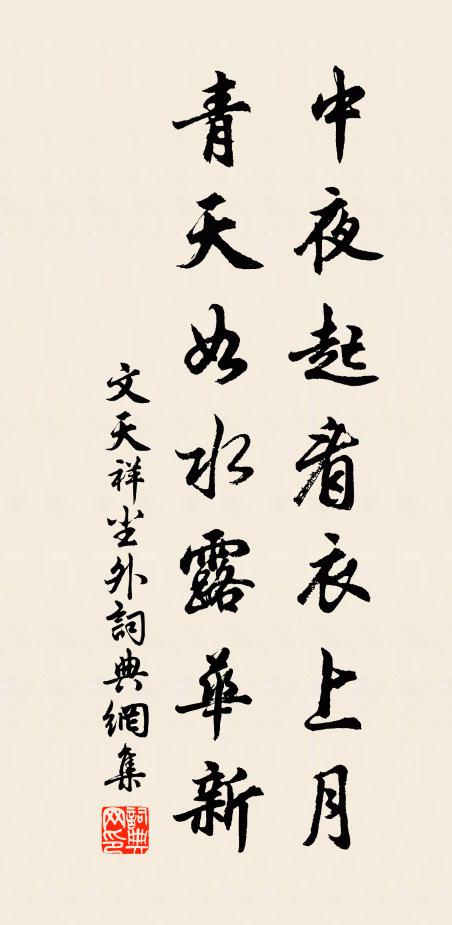 中夜起看衣上月
青天如水露華新
文天祥坐外詞典網集
詞典網印